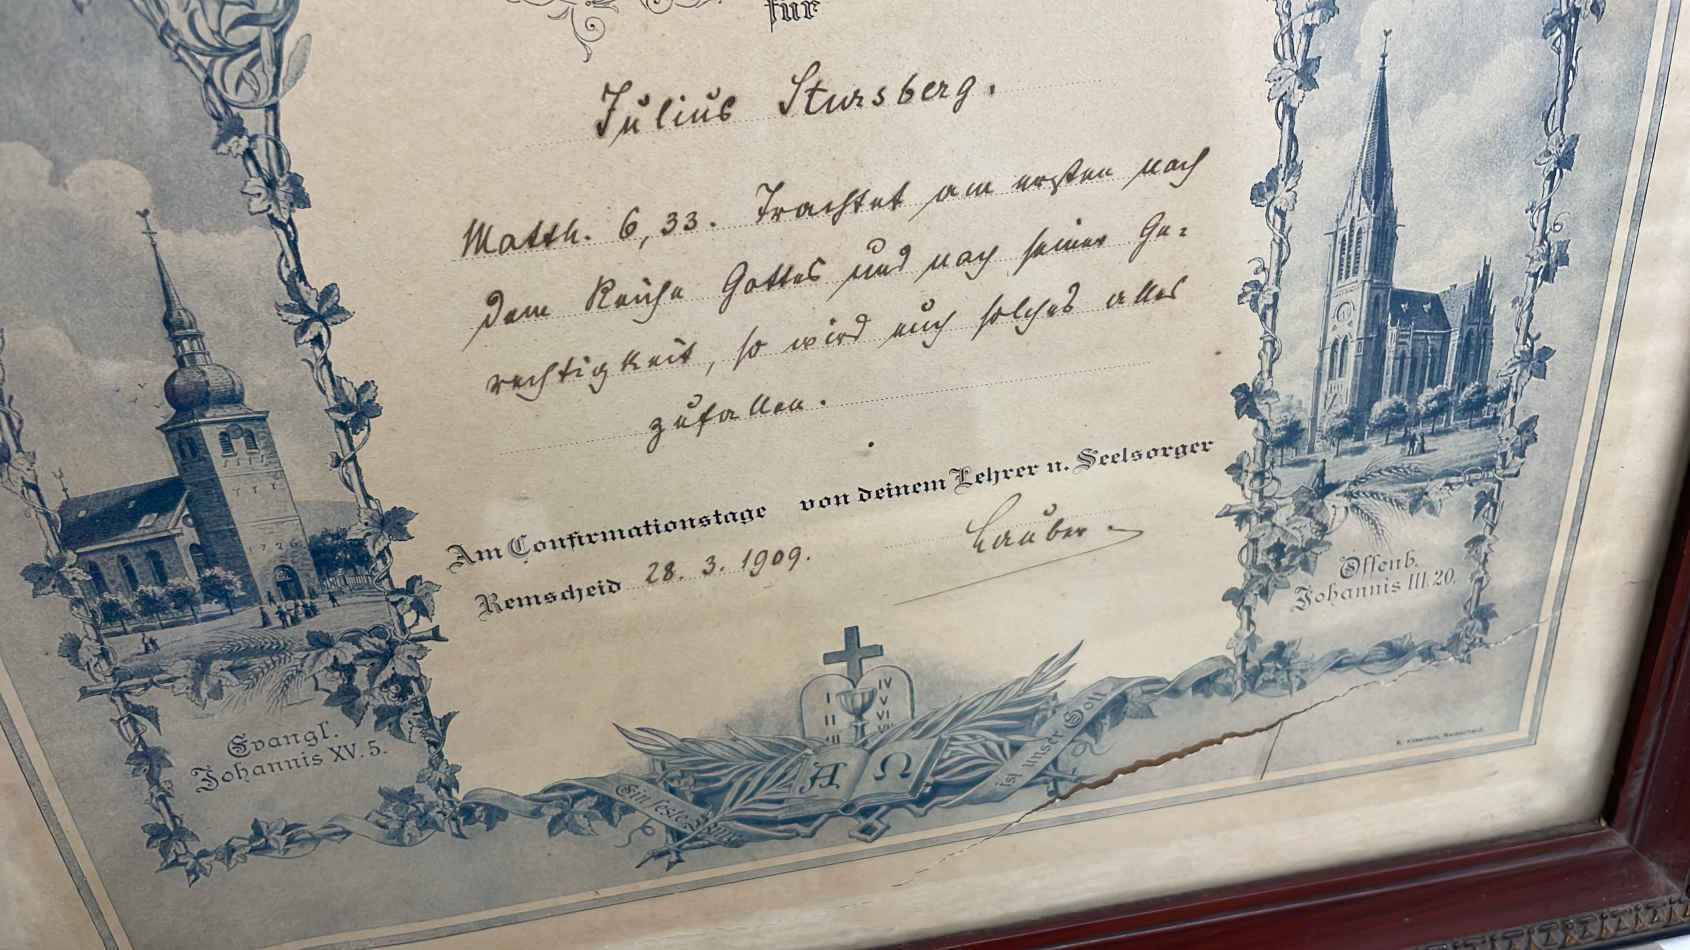 für
Julius Stursberg.
Matth. 6, 33. Trachtet am ersten nach
dem Reiche Gottes und nach seiner Ge=
rechtigkeit, so wird euch solches alles
zufallen.
Am Confirmationstage von deinem Lehrer u. Seelsorger
Remscheid 28. 3. 1909. Lauber
1726
Evangl.
Johannis XV. 5.
Offenb.
Johannis III. 20.
I IV
II V
VI
A Ω
Ein feste
ist unser Gott